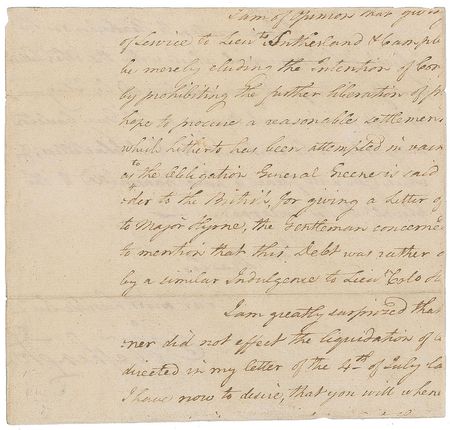 I am of Opinion that giv
of Service to Lieuts Sutherland & Campb
be merely eluding the Intention of Con
by prohibiting the further liberation of p
hope to procure a reasonable settlement
which hitherto has been attempted in vain
to the obligation General Greene is said
der to the British, for giving a Letter of
to Major Hyrne, the Gentleman concerned
to mention that this Debt was rather
by a similar Indulgence to Lieut Colo
I am greatly surprized that
oner did not effect the liquidation of
directed in my letter of the 4th of July la
I have now to desire, that you will where